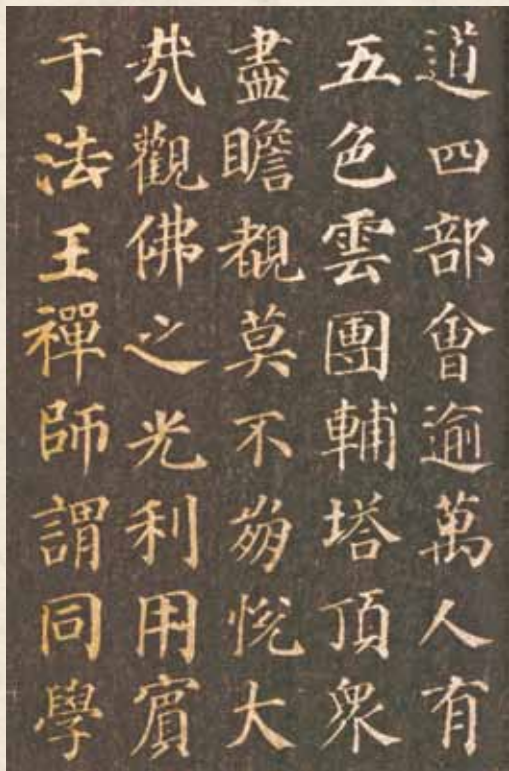 道四部會逾萬人有
五色雲團輔塔頂眾
盡瞻覩莫不崩悅大
哉觀佛之光利用賓
于法王禪師謂同學